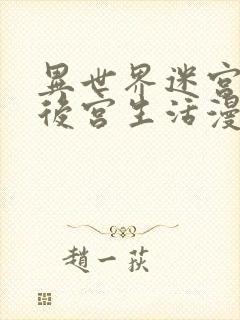 異世界迷宮
後宮生活漫
趙一荻